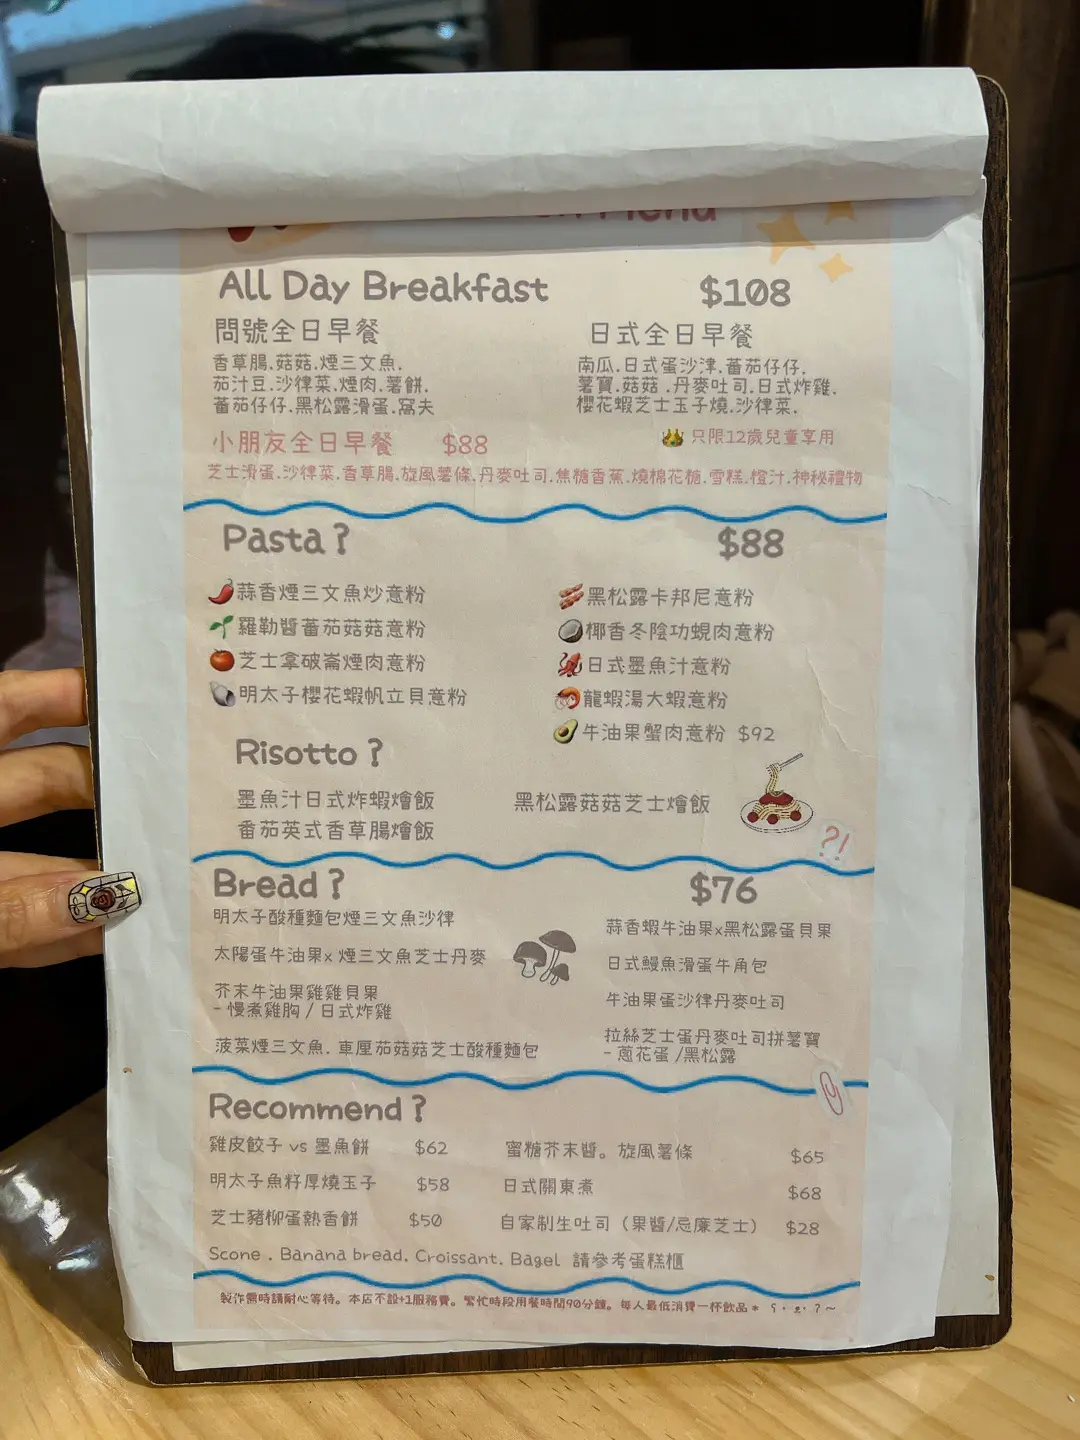 Menu
All Day Breakfast $108
問號全日早餐
香草腸.菇菇.煙三文魚.
茄汁豆.沙律菜.煙肉.薯餅.
蕃茄仔仔.黑松露滑蛋.窩夫
日式全日早餐
南瓜.日式蛋沙津.蕃茄仔仔.
薯寶.菇菇.丹麥吐司.日式炸雞.
櫻花蝦芝士玉子燒.沙律菜.
小朋友全日早餐 $88
只限12歲兒童享用
芝士滑蛋.沙律菜.香草腸.旋風薯條.丹麥吐司.焦糖香蕉.燒棉花糖.雪糕.橙汁.神秘禮物
Pasta? $88
蒜香煙三文魚炒意粉
羅勒醬蕃茄菇菇意粉
芝士拿破崙煙肉意粉
明太子櫻花蝦帆立貝意粉
黑松露卡邦尼意粉
椰香冬陰功蜆肉意粉
日式墨魚汁意粉
龍蝦湯大蝦意粉
牛油果蟹肉意粉 $92
Risotto?
墨魚汁日式炸蝦燴飯
番茄英式香草腸燴飯
黑松露菇菇芝士燴飯
?!
Bread? $76
明太子酸種麵包煙三文魚沙律
太陽蛋牛油果x 煙三文魚芝士丹麥
芥末牛油果雞雞貝果
- 慢煮雞胸 / 日式炸雞
菠菜煙三文魚. 車厘茄菇菇芝士酸種麵包
蒜香蝦牛油果x黑松露蛋貝果
日式鰻魚滑蛋牛角包
牛油果蛋沙律丹麥吐司
拉絲芝士蛋丹麥吐司拼薯寶
- 蔥花蛋 /黑松露
Recommend?
雞皮餃子 vs 墨魚餅 $62
明太子魚籽厚燒玉子 $58
芝士豬柳蛋熱香餅 $50
蜜糖芥末醬。旋風薯條 $65
日式關東煮 $68
自家制生吐司（果醬/忌廉芝士） $28
Scone . Banana bread. Croissant. Bagel 請參考蛋糕櫃
製作需時請耐心等待。本店不設+1服務費。繁忙時段用餐時間90分鐘。每人最低消費一杯飲品*